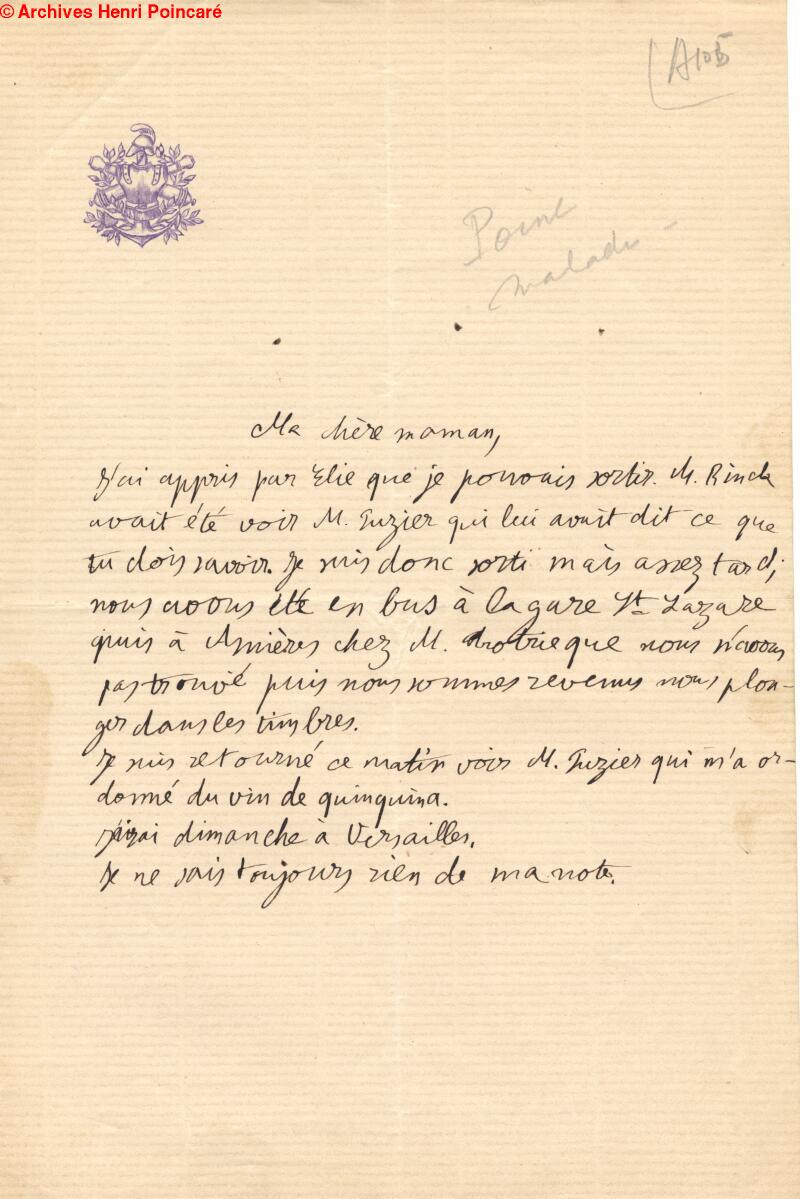 © Archives Henri Poincaré
A105
Poinc
malade
Ma chère maman,
J'ai appris par Elie que je pouvais sortir. M. Rinck
avait été voir M. Guzier qui lui avait dit ce que
tu dois savoir. Je suis donc sorti mais assez tard;
nous avons été en bus à la gare St Lazare
puis à Asnières chez M. que nous n'avons
pas trouvé puis nous sommes revenus nous plon-
ger dans les timbres.
Je suis retourné ce matin voir M. Guzier qui m'a or-
donné du vin de quinquina.
J'irai dimanche à Versailles.
Je ne sais toujours rien de ma note.